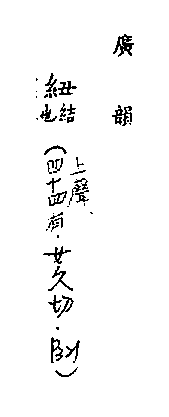 廣韻
紐結也（上聲、四十四有．女久切．）